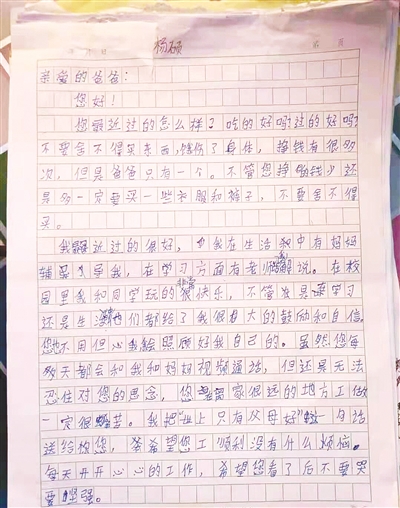 杨硕
亲爱的爸爸：
您好！
您最近过的怎么样？吃的好吗？过的好吗？
不要舍不得买东西，饿伤了身体，挣钱有很多
次，但是爸爸只有一个。不管您挣的钱少还
是多一定要买一些衣服和裤子，不要舍不得
买。
我最近过的很好，我在生活中有妈妈
辅导我，在学习方面有老师解说。在校
园里我和同学玩的很快乐，不管是学习
还是生活他们都给了我很大的鼓励和自信
您不用但心我会照顾好我自己的。虽然您每
天都会和我和妈妈视频通话，但还是无法
忍住对您的思念，您离家很远的地方工做
一定很辛苦。我把“世上只有父母好”这句话
送给您，希望您工顺利没有什么烦恼。
每天开开心心的工作，希望您看了后不要哭
要坚强。